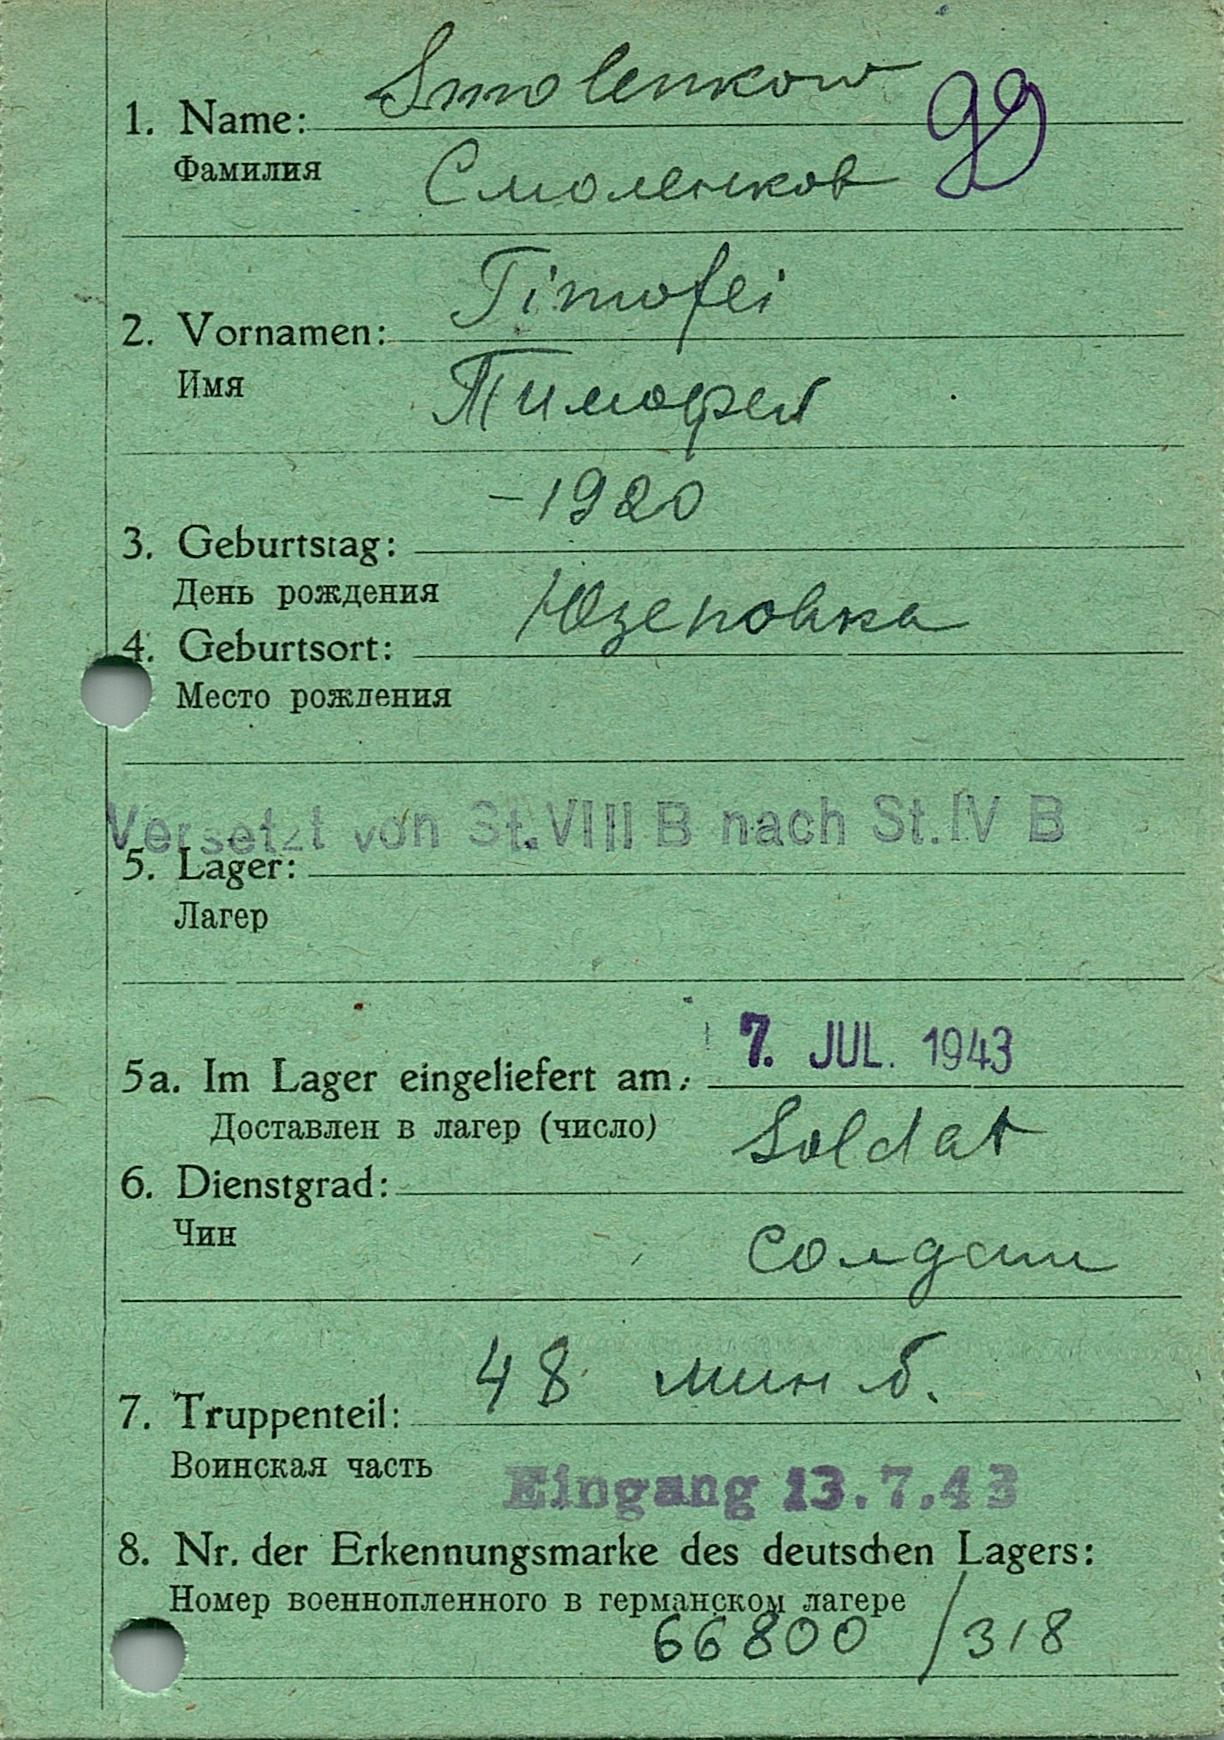 Smolenkow
1. Name:
99
Фамилия
Смоленков
Timofei
2. Vornamen:
Имя
Тимофей
-1920
3. Geburtstag:
День рождения
Юзеповка
4. Geburtsort:
Место рождения
Versetzt von St. VIII B nach St. IV B
5. Lager:
Лагер
7. JUL. 1943
5a. Im Lager eingeliefert am:
Доставлен в лагер (число)
Soldat
6. Dienstgrad:
Чин
солдат
48 мин б.
7. Truppenteil:
Воинская часть
Eingang 13.7.43
8. Nr. der Erkennungsmarke des deutschen Lagers:
Номер военнопленного в германском лагере
66800/318